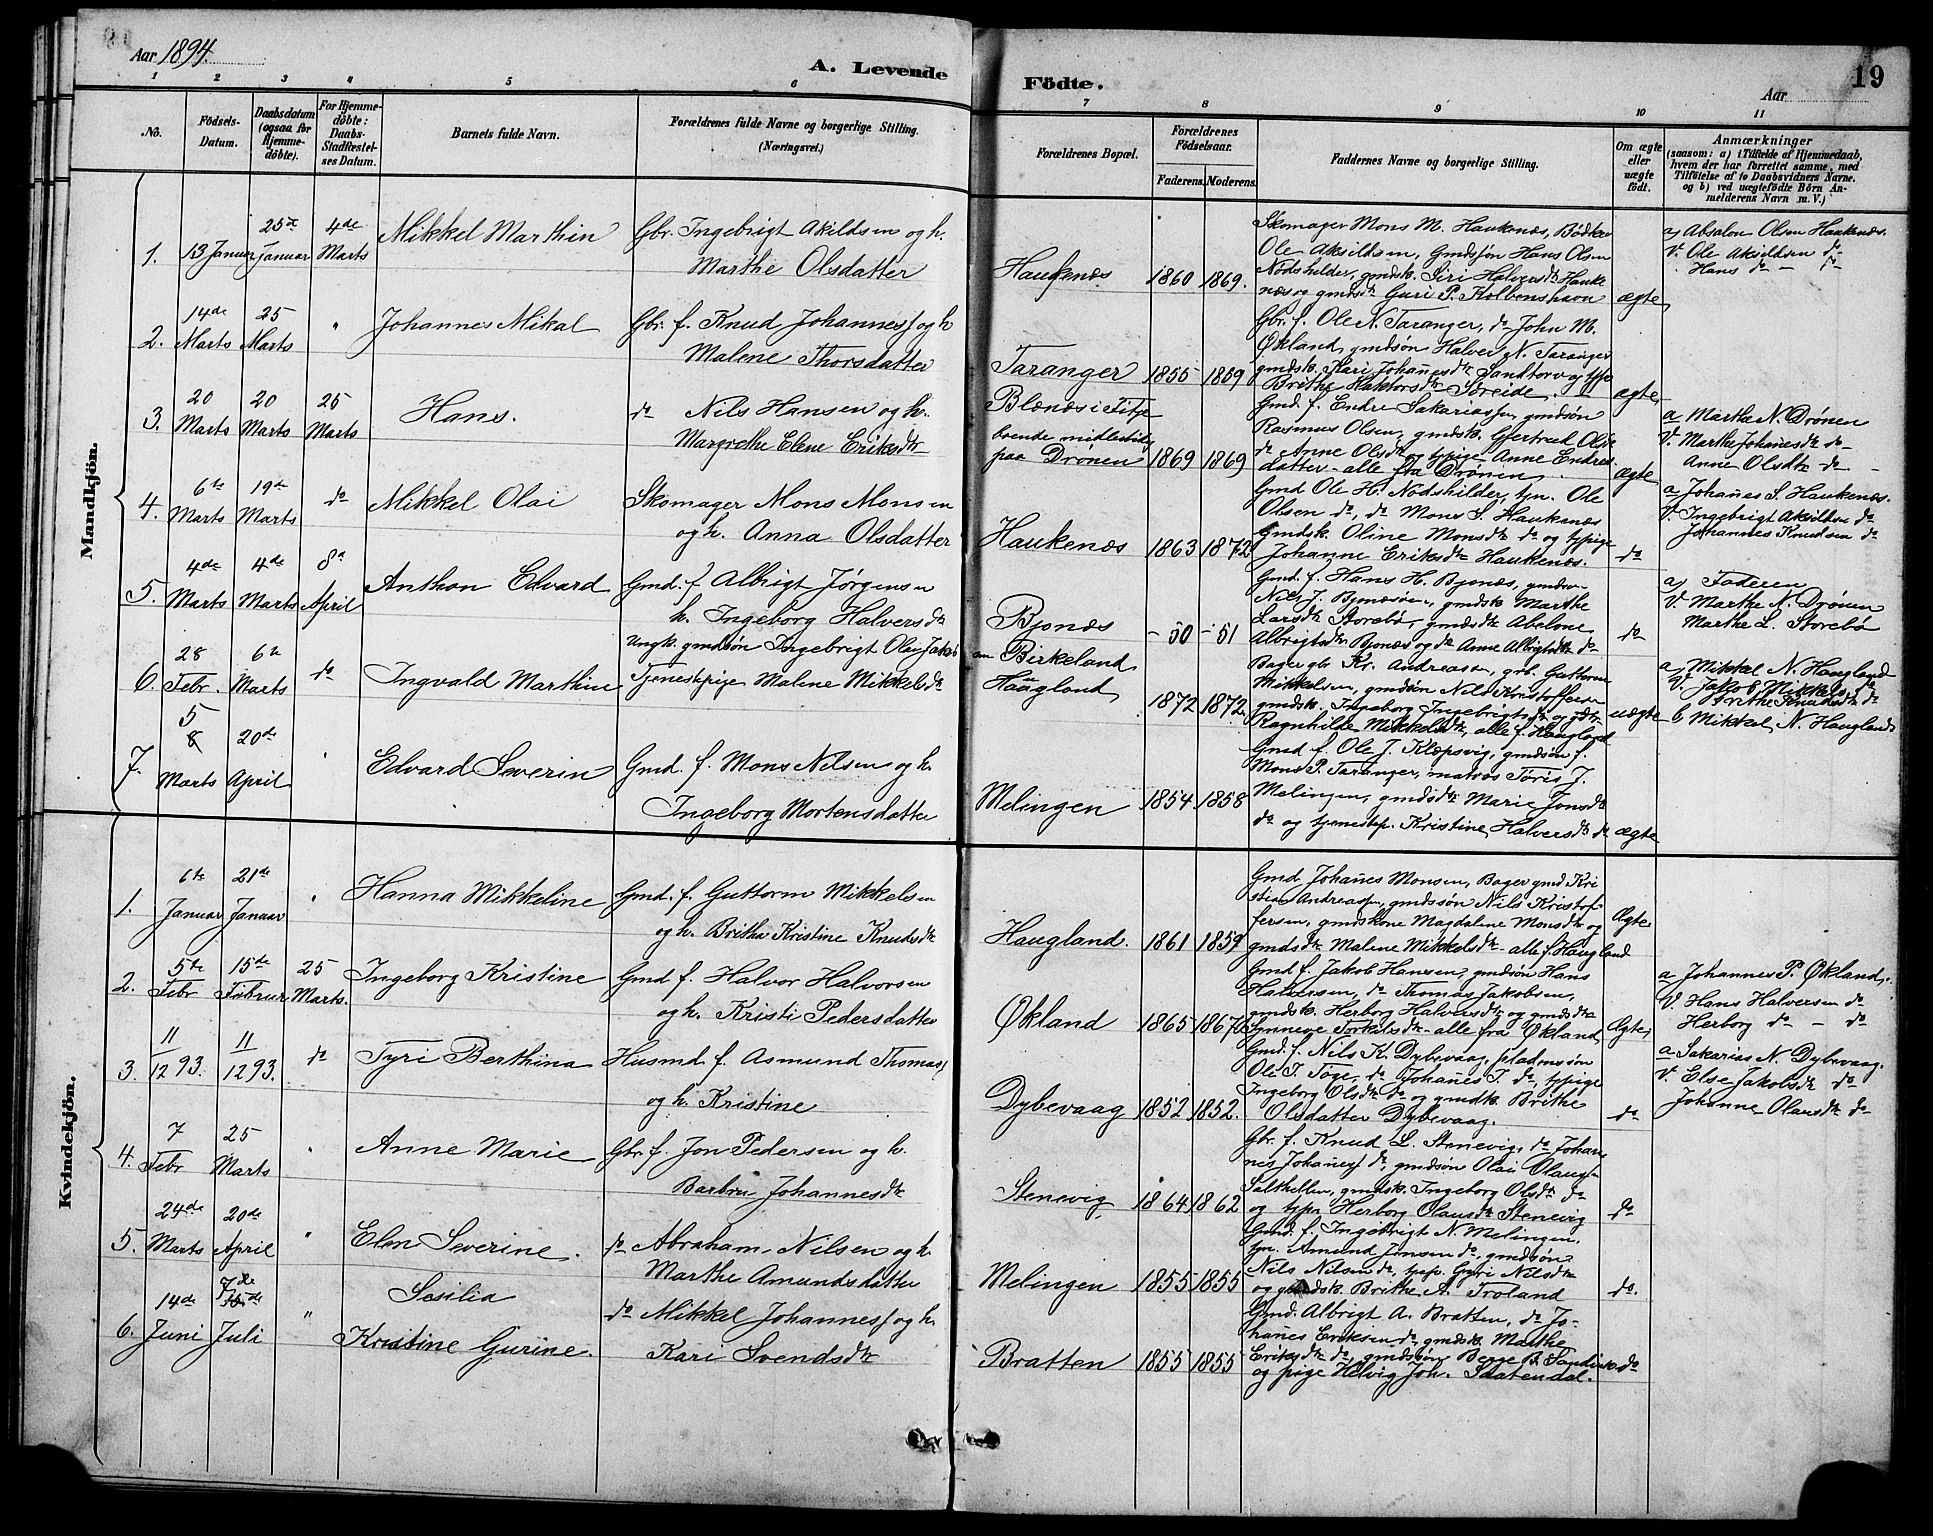 Aar 1894.
A. Levende
Födte.
Aar
19
1 2 3 4 5 6 7 8 9 10 11
No.
Födsels-Datum.
Daabsdatum (ogsaa for Hjemme-döbte).
For Hjemme-döbte: Daabs-Stadfæstel-ses Datum.
Barnets fulde Navn.
Forældrenes fulde Navne og borgerlige Stilling. (Næringsvei.)
Forældrenes Bopæl.
Forældrenes Födselsaar.
Faderens. Moderens.
Faddernes Navne og borgerlige Stilling.
Om ægte eller uægte födt.
Anmærkninger
(saasom: a) i Tilfælde af Hjemmedaab,
hvem der har forrettet samme, med
Tilföielse af to Daabsvidners Navne.
og b) ved uægtefödte Börn An-
melderens Navn m. V.)
Mandkjön.
1. 13 Januar 25de Januar 4de Marts Mikkel Marthin
Gbr. Ingebrigt Akildsen og h.
Marthe Olsdatter
Haukenæs 1860 1869.
Skomager Mons M. Haukenæs, Bødker
Ole Aksildsen, Gmdsjøn Hans Olsen
Nodshilder, gmdsk. Siri Halversdtr Hauke
næs og gmdsdtr Guri P. Kolbenshavn
ægte
a) Absalon Olsen Haukenæs.
V. Ole Aksildsen do
Hans do - do
2. 14de Marts 25 Marts " Johannes Mikal
Gbr. f. Knud Johannesf og h
Malene Thorsdatter
Taranger 1855 1859
Gbr. f. Ole N. Taranger, do John M.
Økland, gmdsøn Halver N. Taranger
gmdsk. Kari Johañesdtr Sandtorv og tjp
Brithe Haktorsdtr Søreide.
ægte
3. 20 Marts 20 Marts 25 Marts Hans.
do Nils Hansen og h.
Margrethe Elene Eriksdtr
Blænæs i Fitje
boende midlertidig
paa Drønen 1869 1869
Gmd. f. Endre Sakariassen, gmdsøn
Rasmus Olsen, gmdsk. Gjertrud Olsdtr
do Anne Olsdtr og tjpige Anne Endres
datter - alle fra Drønen
ægte
a Martha N. Drönen
V. Marthe Johañesdtr do
Anne Olsdtr do -
4. 6te Marts 19de Marts do Mikkel Olai
Skomager Mons Monsen
og h. Anna Olsdatter
Haukenæs 1863 1872
Gmd Ole H. Nodshilder, tjn. Ole
Olsen do, do Mons S. Haukenæs
gmdsk. Oline Monsdtr do og tjpige
Johanne Eriksdtr Haukenæs.
do
a Johañes S. Haukenæs.
V. Ingebrigt Aksildsen do
Johannes Knudsen do
5. 4de Marts 4de Marts 8a April Anthon Edvard
Gmd. f Albrigt Jørgensen
h. Ingeborg Halversdtr
Bjonæs - 50 - 51
Gmd. f. Hans H. Bjonæs, gmdsøn
Nils J. Bjonæsøen, gmdsk Marthe
Larsdtr Storebø, gmdsdtr Abelone
Albrigtsdtr Bjonæs og do Anne Albrigtsdtr do
do
a) Faderen
V. Marthe N. Drönen
Marthe L. Storebø
6. 28 Febr. 6te Marts do Ingvald Marthin
Ungk. gmdsøn Ingebrigt Olai Jakobs
Tjenestepige Malene Mikkelsdtr
Birkeland
Haugland 1872 1872
Bager gbr Kr. Andreassen, grd. Guttorm
Mikkelsen, gmdsøn Nils Kristoffersen
gmdsk. Ingeborg Ingebrigtsdtr og gdtr
Ragnhilde Mikkelsdtr, alle f. Haugland
uægte
a) Mikkel N. Haugland
V. Jakob Mikkelsen do
Brithe Knudsdtr do
b Mikkel N. Haugland
7. 5 Marts 20de April " Edvard Severin
Gmd. f Mons Nilsen og h.
Ingeborg Mortensdatter
Melingen 1854 1858
Gmd f. Ole J. Klæpsvig, gmdsøn f.
Mons P. Taranger, matros Töris J.
Melingen, gmdsdtr Marie Jonsdtr
do og tjenestep. Kristine Halversdtr do
ægte
Kvindekjön.
1. 6te Januar 21de Januar " Hanna Mikkeline
Gmd. f. Guttorm Mikkelsen
og h. Britha Kristine Knudsdtr
Haugland. 1861 1859
Gmd Johañes Monsen, Bager gmd Kri
stian Andreassen, gmdssön Nils Kristof-
fersen, gmdskone Magdalene Monsdtr og
gmdsdtr Malene Mikkelsdtr - alle f. Haugland
Ægte
2. 5te Febr 15de Februar 25 Marts. Ingeborg Kristine
Gmd f. Halvor Halvorsen
og h. Kristi Pedersdatter
Økland 1865 1867
Gmd f. Jakob Hansen, gmdsøn Hans
Halversen, do Thomas Jakobsen,
gmdsk. Herborg Halversdtr og gmdsdtr
Synneve Torkelsdtr - alle fra Økland
Ægte
a Johannes P. Økland.
V. Hans Halversen do
Herborg do - do
3. 11/12 93. 11/12 93. do Tyri Berthina
Husmd f. Asmund Thomas/
og h. Kristine
Dybevaag 1852 1852.
Gmd. f. Nils K. Dybevaag, pladsmsøn
Ole T. Töge, do Johañes T. do, tjpige
Ingeborg Olsdtr do og gmdk. Brithe
Olsdatter Dybevaag.
do
a Sakarias N. Dybevaag.
V. Else Jakobsdtr do
Johanne Olausdtr do
4. 7 Febr 25 Marts " Anne Marie
Gbr. f. Jon Pedersen og h.
Barbru Johannesdtr
Stenevig 1864 1862
Gbr. f. Knud L. Stenevig, do Johan
nes Johañesf do, gmdsøn Olai Olausf
Salthellen, gmdsk. Ingeborg Olsdtr do
og tjpi Herborg Olausdtr Stenevig
do
5. 24de Marts 20de April " Elen Severine.
do Abraham Nilsen og h.
Marthe Amundsdatter
Melingen 1855 1855
Gmd. f. Ingebrigt N. Melingen,
tjn. Amund Jonsen do, gmdsøn
Nils Nilsen do, tjp. Guri Nilsdtr
og gmdsk. Brithe A. Troland
do.
6. 14de Juni 7de Juli " Sesilia
Kristine Gurine.
do Mikkel Johannesf og h.
Kari Svendsdtr
Bratten 1855 1855
Gmd. Albrigt A. Bratten, do Jo-
hanes Eriksen do, gmdsk. Marthe
Eriksdtr do, gmdssøn Berge B. Sandvik
og pige Helvig Joh. Slaatendal.
do